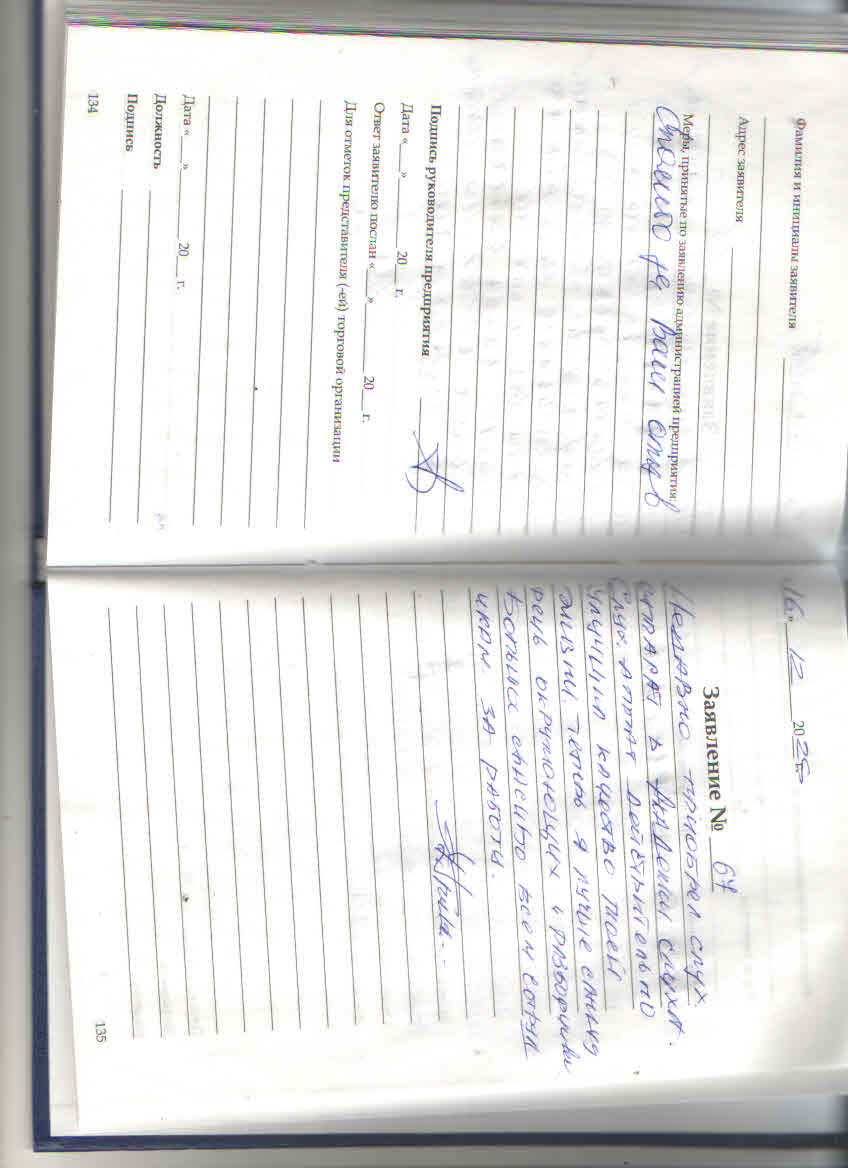 Фамилия и инициалы заявителя
Адрес заявителя
Меры, принятые по заявлению администрацией предприятия:
Спасибо за Ваш отзыв
Подпись руководителя предприятия
Дата «___» ________ 20__ г.
Ответ заявителю послан «___» ________ 20__ г.
Для отметок представителя (-ей) торговой организации
Дата «___» ________ 20__ г.
Должность
Подпись
134
16» 12 2025
Заявление № 67
Недавно приобрел слух.
аппарат в Академии слуха.
Слух. аппарат действительно
улучшил качество моей
жизни. Теперь я лучше слышу
речь окружающих
Большое спасибо всем сотруд
никам за работу.
135